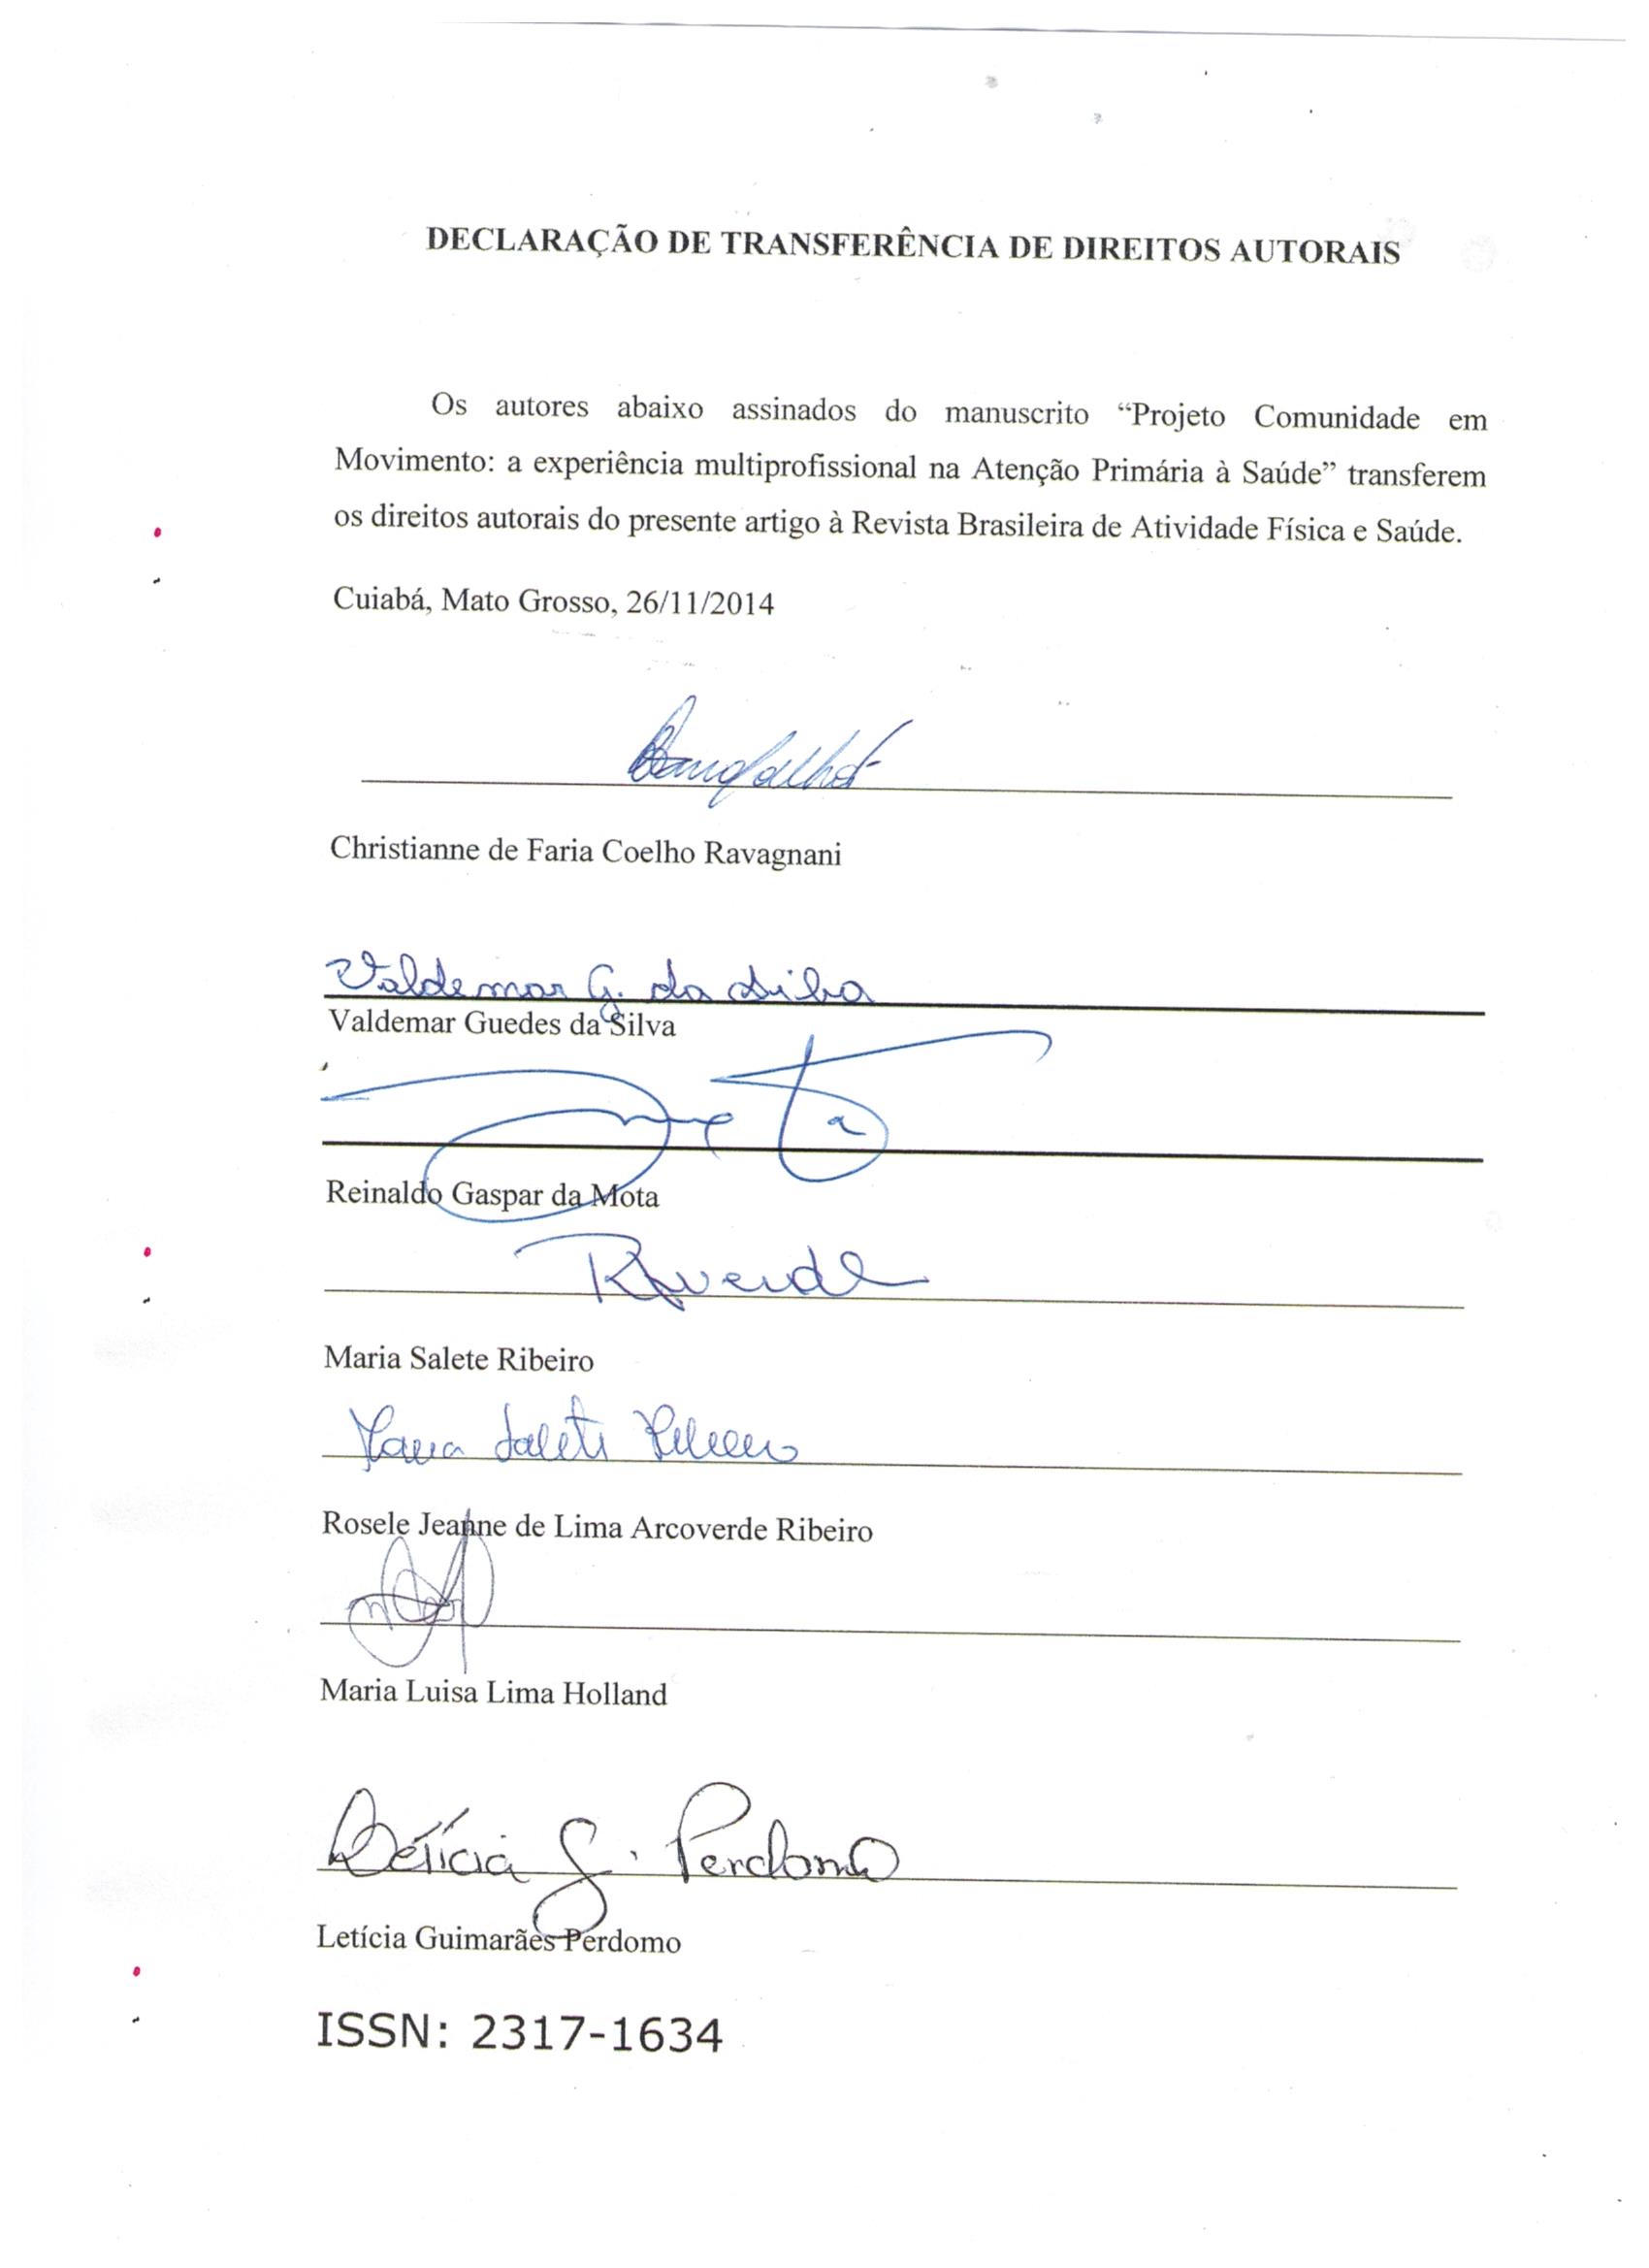 DECLARAÇÃO DE TRANSFERÊNCIA DE DIREITOS AUTORAIS
Os autores abaixo assinados do manuscrito “Projeto Comunidade em
Movimento: a experiência multiprofissional na Atenção Primária à Saúde” transferem
os direitos autorais do presente artigo à Revista Brasileira de Atividade Física e Saúde.
Cuiabá, Mato Grosso, 26/11/2014
Christianne de Faria Coelho Ravagnani
Valdemar G. da Silva
Valdemar Guedes da Silva
Reinaldo Gaspar da Mota
Maria Salete Ribeiro
Maria Salete Ribeiro
Rosele Jeanne de Lima Arcoverde Ribeiro
Maria Luisa Lima Holland
Letícia G. Perdomo
Letícia Guimarães Perdomo
ISSN: 2317-1634